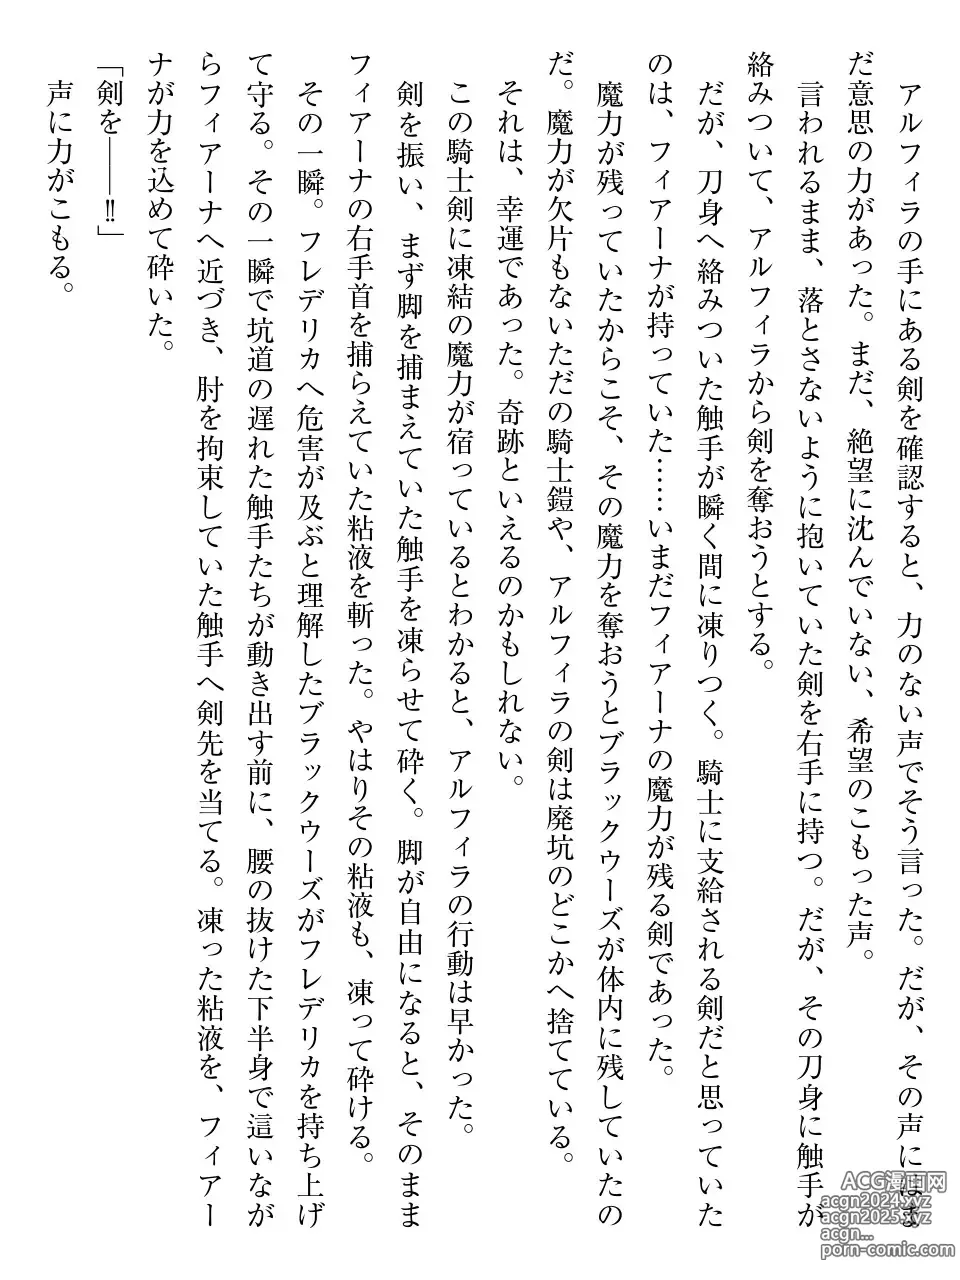 アルフィラの手にある剣を確認すると、力のない声でそう言った。だが、その声にはま
だ意思の力があった。まだ、絶望に沈んでいない、希望のこもった声。
言われるまま、落とさないように抱いていた剣を右手に持つ。だが、その刀身に触手が
絡みついて、アルフィラから剣を奪おうとする。
だが、刀身へ絡みついた触手が瞬く間に凍りつく。騎士に支給される剣だと思っていた
のは、フィアーナが持っていた……いまだフィアーナの魔力が残る剣であった。
魔力が残っていたからこそ、その魔力を奪おうとブラックウーズが体内に残していたの
だ。魔力が欠片もないただの騎士鎧や、アルフィラの剣は廃坑のどこかへ捨てている。
それは、幸運であった。奇跡といえるのかもしれない。
この騎士剣に凍結の魔力が宿っているとわかると、アルフィラの行動は早かった。
剣を振い、まず脚を捕まえていた触手を凍らせて砕く。脚が自由になると、そのまま
フィアーナの右手首を捕らえていた粘液を斬った。やはりその粘液も、凍って砕ける。
その一瞬。フレデリカへ危害が及ぶと理解したブラックウーズがフレデリカを持ち上げ
て守る。その一瞬で坑道の遅れた触手たちが動き出す前に、腰の抜けた下半身で這いなが
らフィアーナへ近づき、肘を拘束していた触手へ剣先を当てる。凍った粘液を、フィアー
ナが力を込めて砕いた。
「剣を――‼」
声に力がこもる。
ACG漫画网
acgn2024.xyz
acgn2025.xyz
acgn...
porn-comic.com